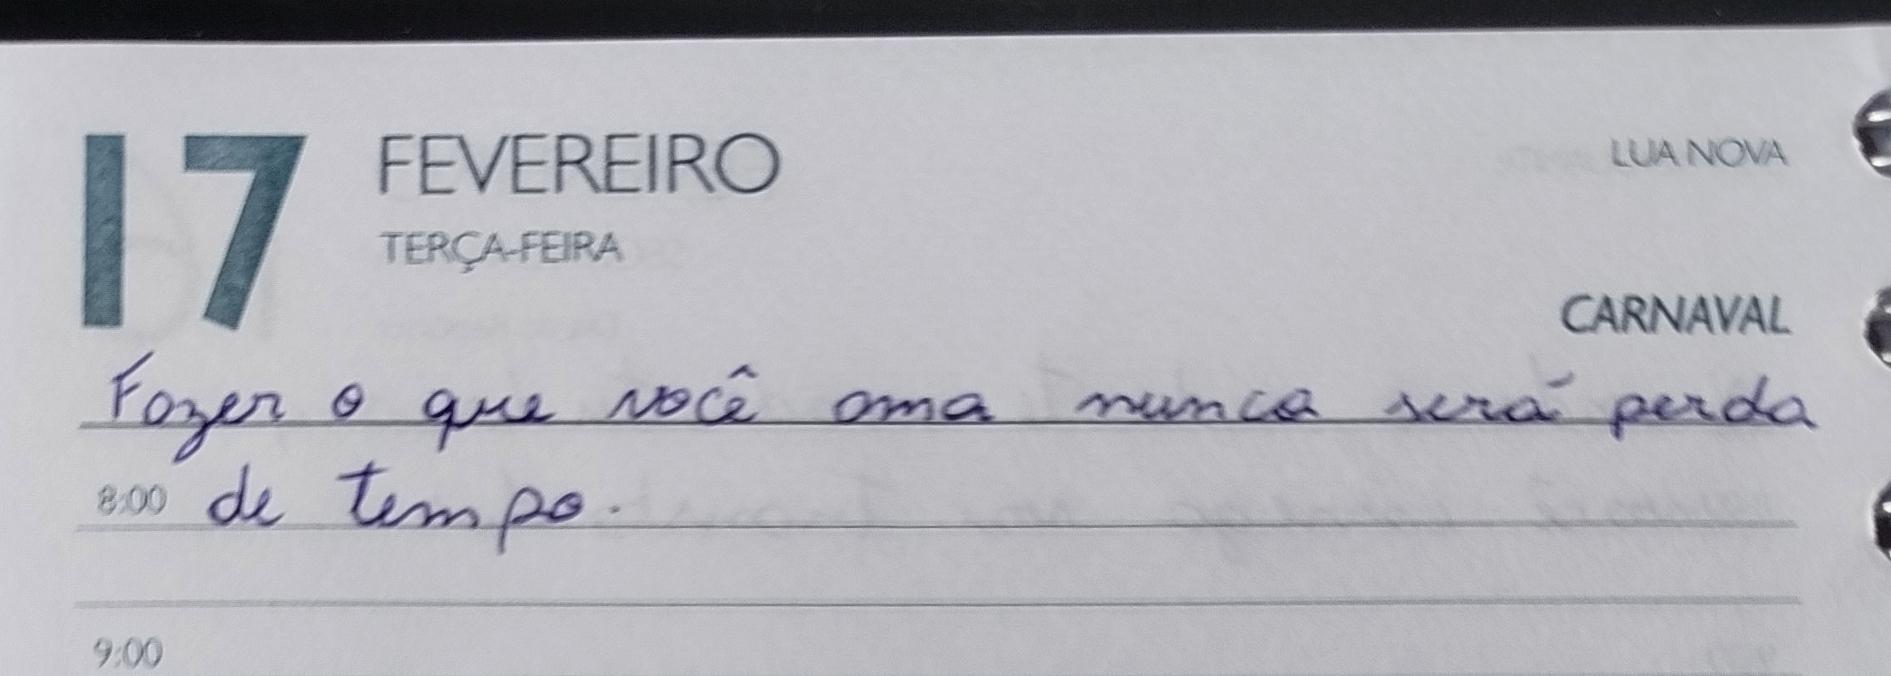 17 FEVEREIRO LUA NOVA
TERÇA-FEIRA
CARNAVAL
Fazer o que você ama nunca será perda
8:00 de tempo.
9:00